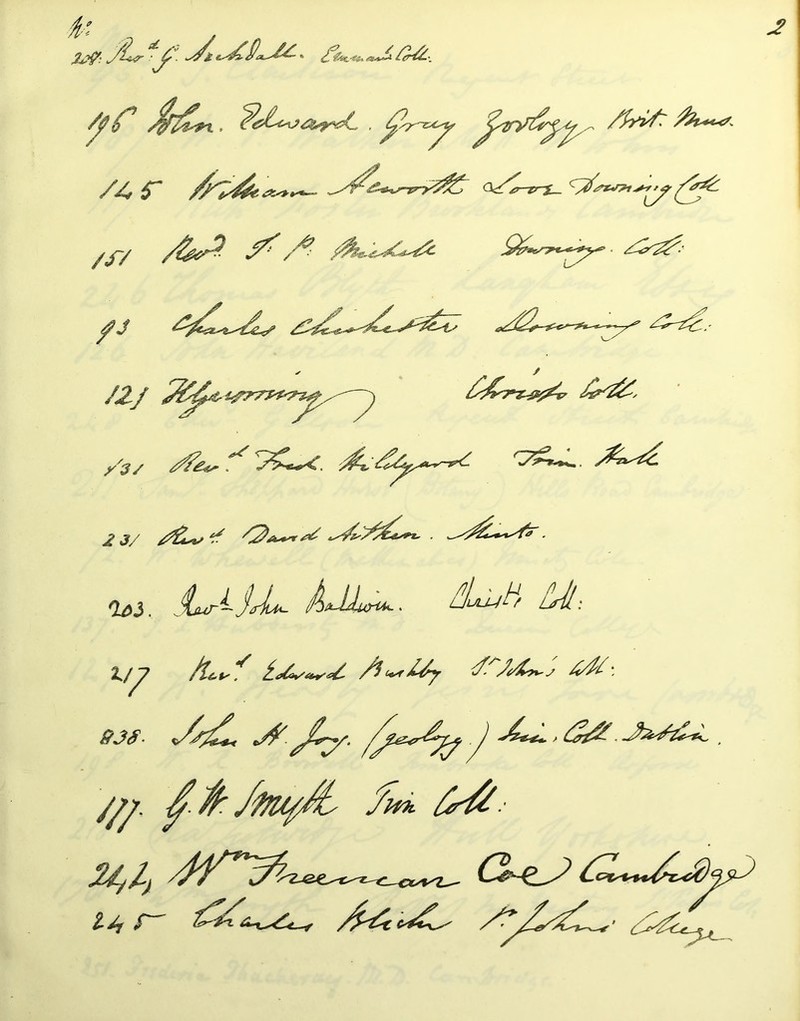 No. 2
208. Revd. G. Archdall. Emman. Coll.
196 John. Edward. Gray Zoology Brit. Mus.
145 William Acworth Love Downing Coll
151 Revd. P. Michell Downing. Coll:
93 Charles Chichester Downing Coll:
121 Christs Coll.
131 Revd. Fred. Hildyard Trin. Hall
231 Revd David Aitken. Minto.
203. Revd John Baldwin. Christ's Coll:
217 Revd. Edward Bushby St. John's Coll:
838. John H. Joy. (geology.) Trin. Coll. Dublin.
177. G. W. Smyth Trin Coll:
244 Wm Freeman Coe Cambridge
245 Charles St. Johns College